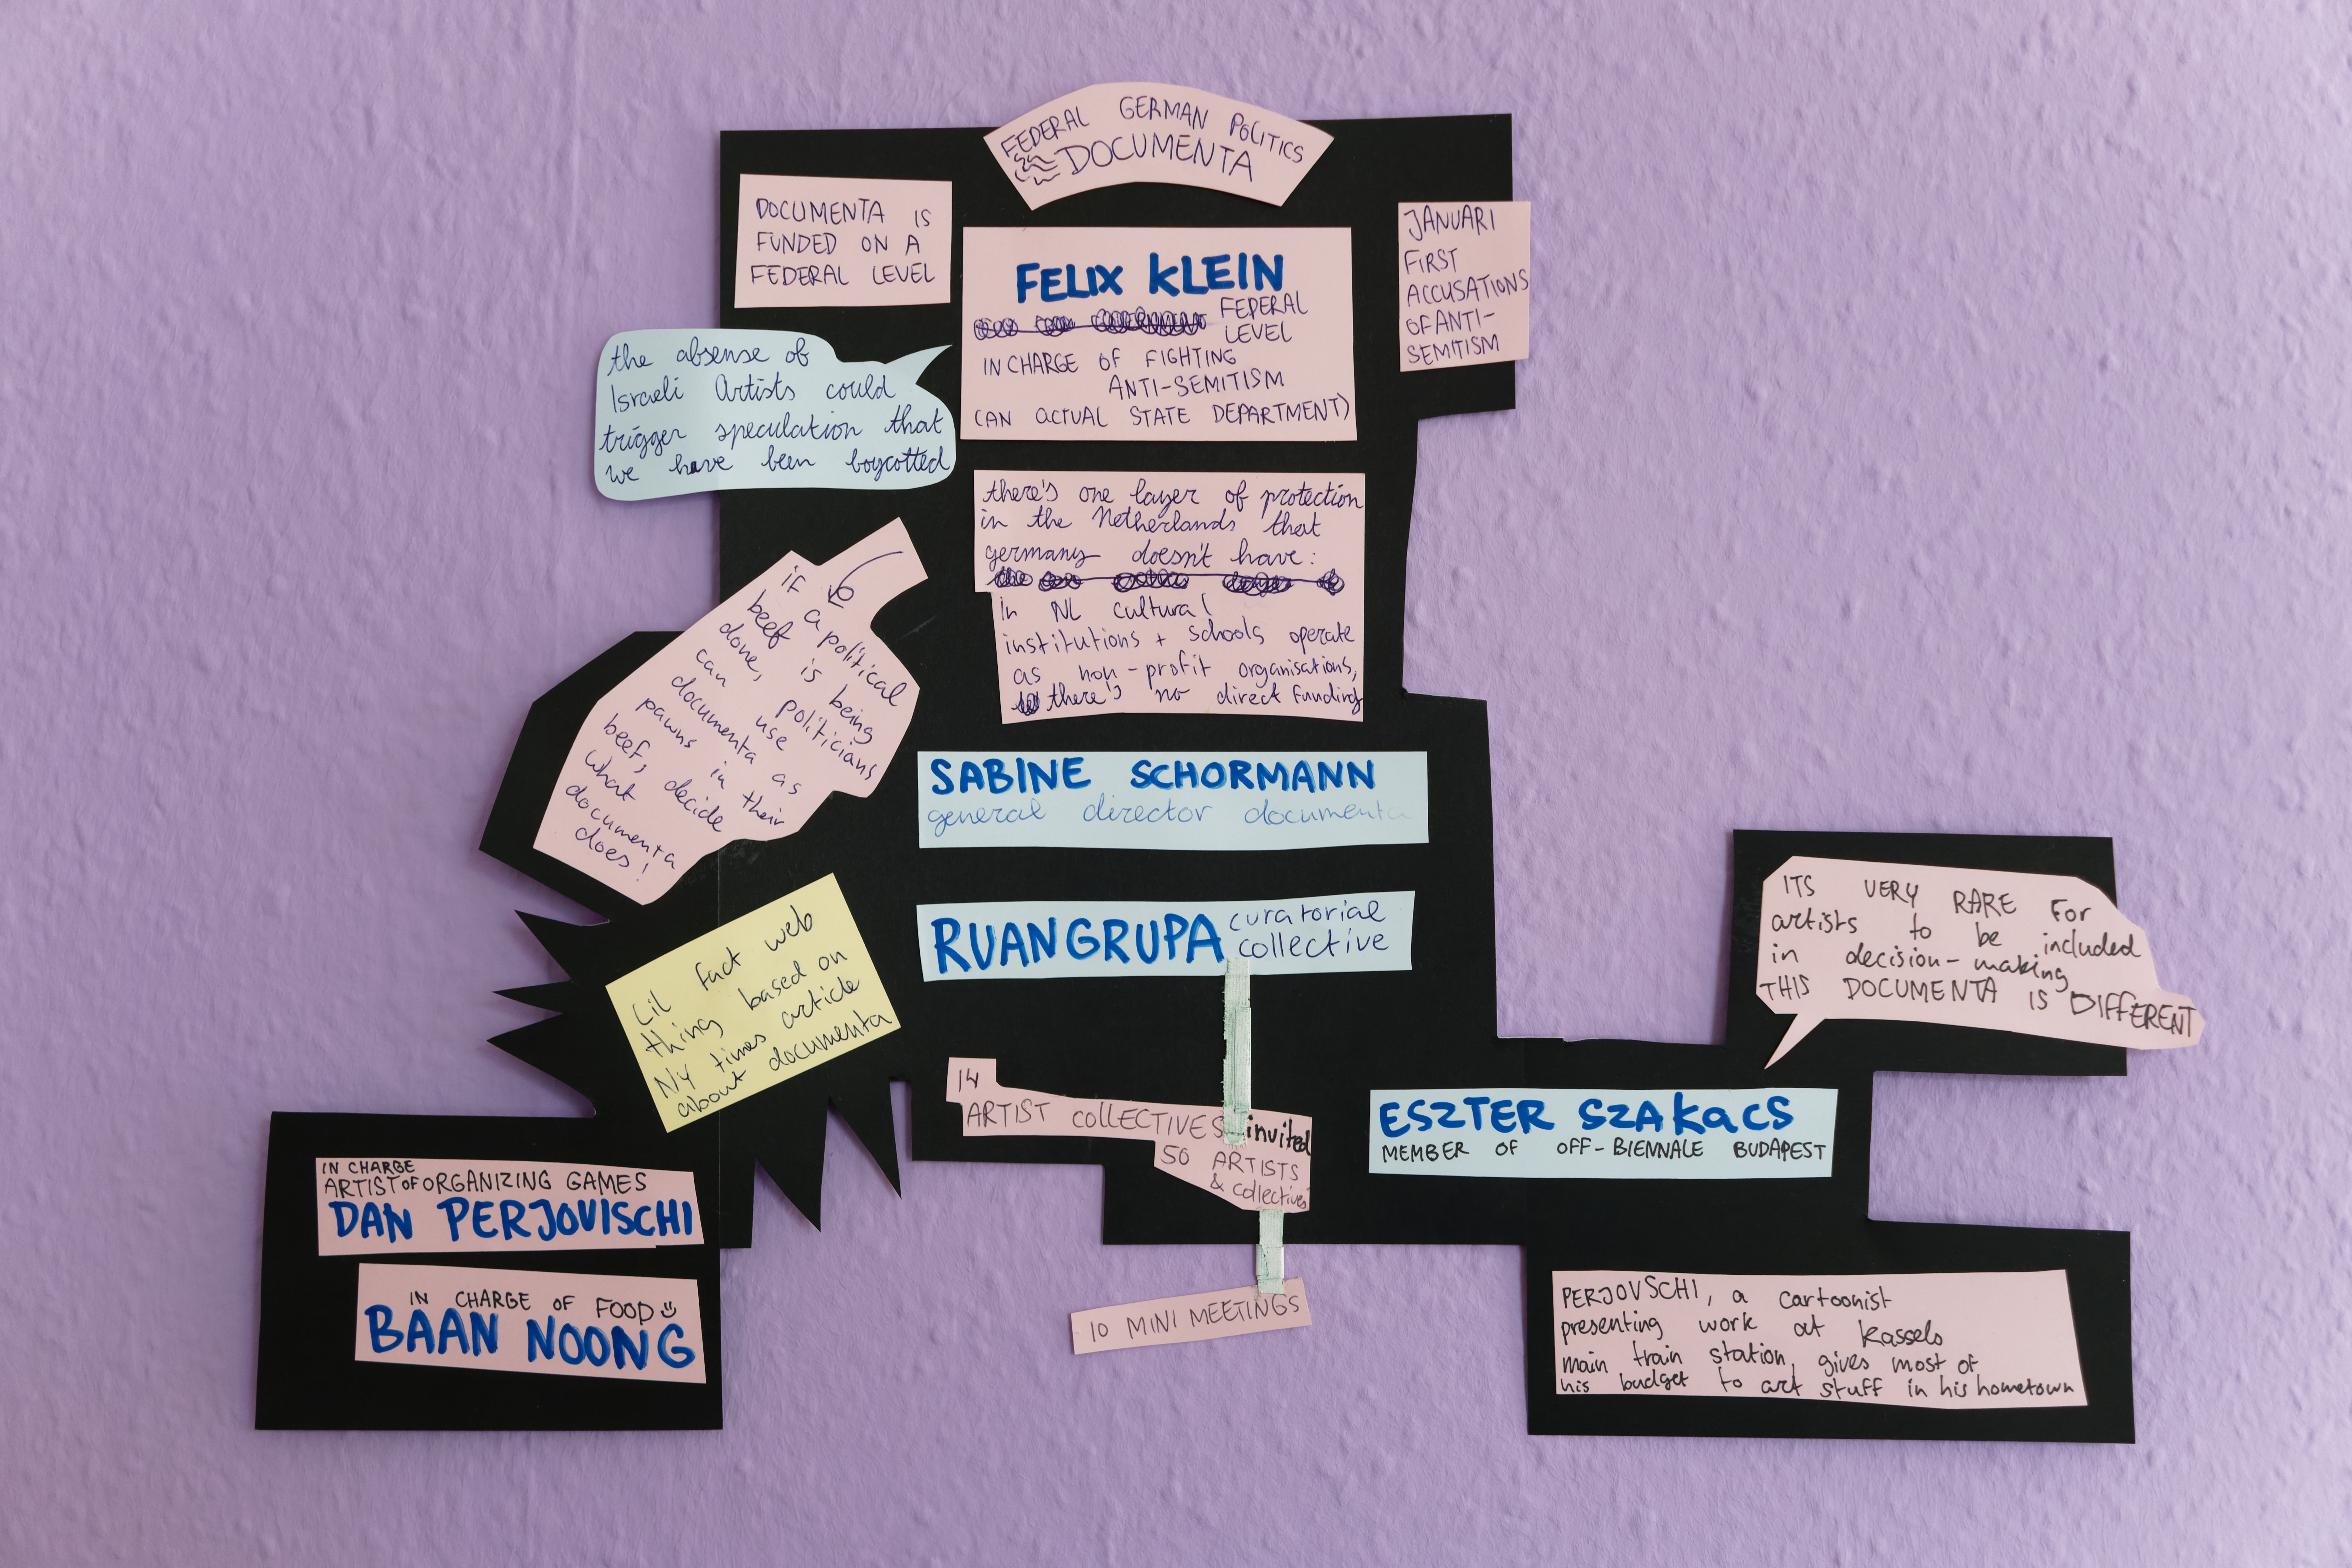 FEDERAL GERMAN POLITICS
DOCUMENTA
DOCUMENTA IS
FUNDED ON A
FEDERAL LEVEL
FELIX KLEIN
FEDERAL
LEVEL
IN CHARGE OF FIGHTING
ANTI-SEMITISM
(AN ACTUAL STATE DEPARTMENT)
JANUARI
FIRST
ACCUSATIONS
OF ANTI-
SEMITISM
the absense of
Israeli Artists could
trigger speculation that
we have been boycotted
there's one layer of protection
in the Netherlands that
germany doesn't have:
In NL cultural
institutions + schools operate
as non-profit organisations,
there's no direct funding
if a political
beef is being
done, politicians
can use
documenta as
pawns in their
beef, decide
what documenta
does!
SABINE SCHORMANN
general director documenta
RUANGRUPA curatorial
collective
Lil fact web
thing based on
NY times article
about documenta
ITS VERY RARE FOR
artists to be included
in decision-making
THIS DOCUMENTA IS DIFFERENT
14
ARTIST COLLECTIVES invited
50 ARTISTS
& collectives
10 MINI MEETINGS
ESZTER SZAKACS
MEMBER OF OFF-BIENNALE BUDAPEST
IN CHARGE
ARTIST OF ORGANIZING GAMES
DAN PERJOVISCHI
IN CHARGE OF FOOD
BAAN NOONG
PERJOVSCHI, a cartoonist
presenting work at Kassels
main train station, gives most of
his budget to art stuff in his hometown